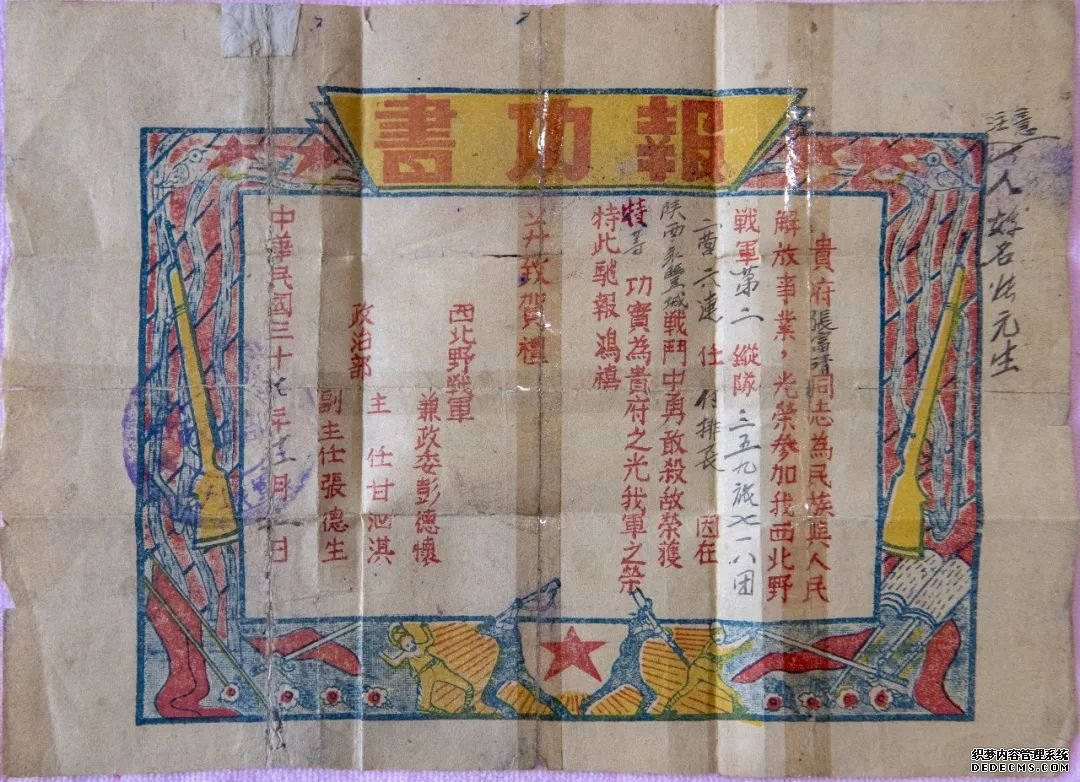 報功書
貴府張富清同志為民族與人民
解放事業，光榮參加我西北野
戰軍第二縱隊三五九旅七一八团
二营六連 任 付排長 因在
陕西永豐城戰鬥中勇敢殺敵榮獲
特等 功實為貴府之光我軍之榮
特此馳報鴻禧
并致賀禮
西北野戰軍
兼政委彭德懷
政治部
主 任甘泗淇
副主任張德生
中華民國三十七年十二月 日
注意
人 姓名 元生
织梦内容管理系统
DEDECMS.COM